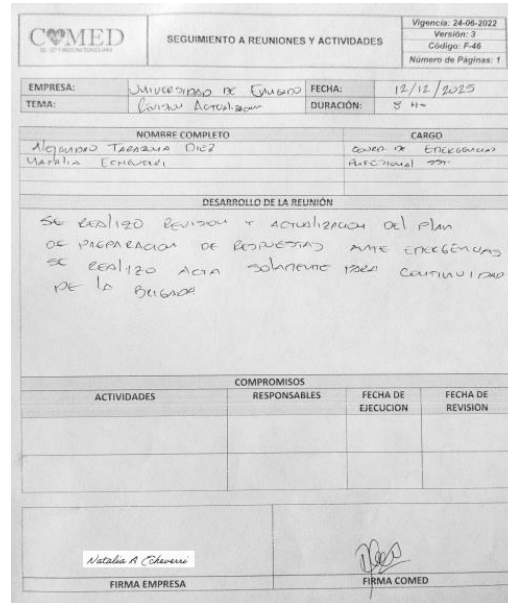 COMED
SEGUIMIENTO A REUNIONES Y ACTIVIDADES
Vigencia: 24-06-2022
Versión: 3
Código: F-46
Número de Páginas: 1
EMPRESA: UNIVERSIDAD DE ENVIGADO FECHA: 12/12/2025
TEMA: Actualizacion DURACIÓN: 8 H
NOMBRE COMPLETO CARGO
Alejandro TARAZONA DIEZ COORD DE EMERGENCIAS
NATALIA ECHEVERRI PROFESIONAL SST
DESARROLLO DE LA REUNIÓN
SE REALIZO REVISION Y ACTUALIZACION DEL PLAN
DE PREPARACION DE RESPUESTAS ANTE EMERGENCIAS
SE REALIZO ACTA SOLAMENTE PARA CONTINUIDAD
DE LA BRIGADA
COMPROMISOS
ACTIVIDADES RESPONSABLES FECHA DE EJECUCION FECHA DE REVISION
Natalia A Echeverri
FIRMA EMPRESA FIRMA COMED